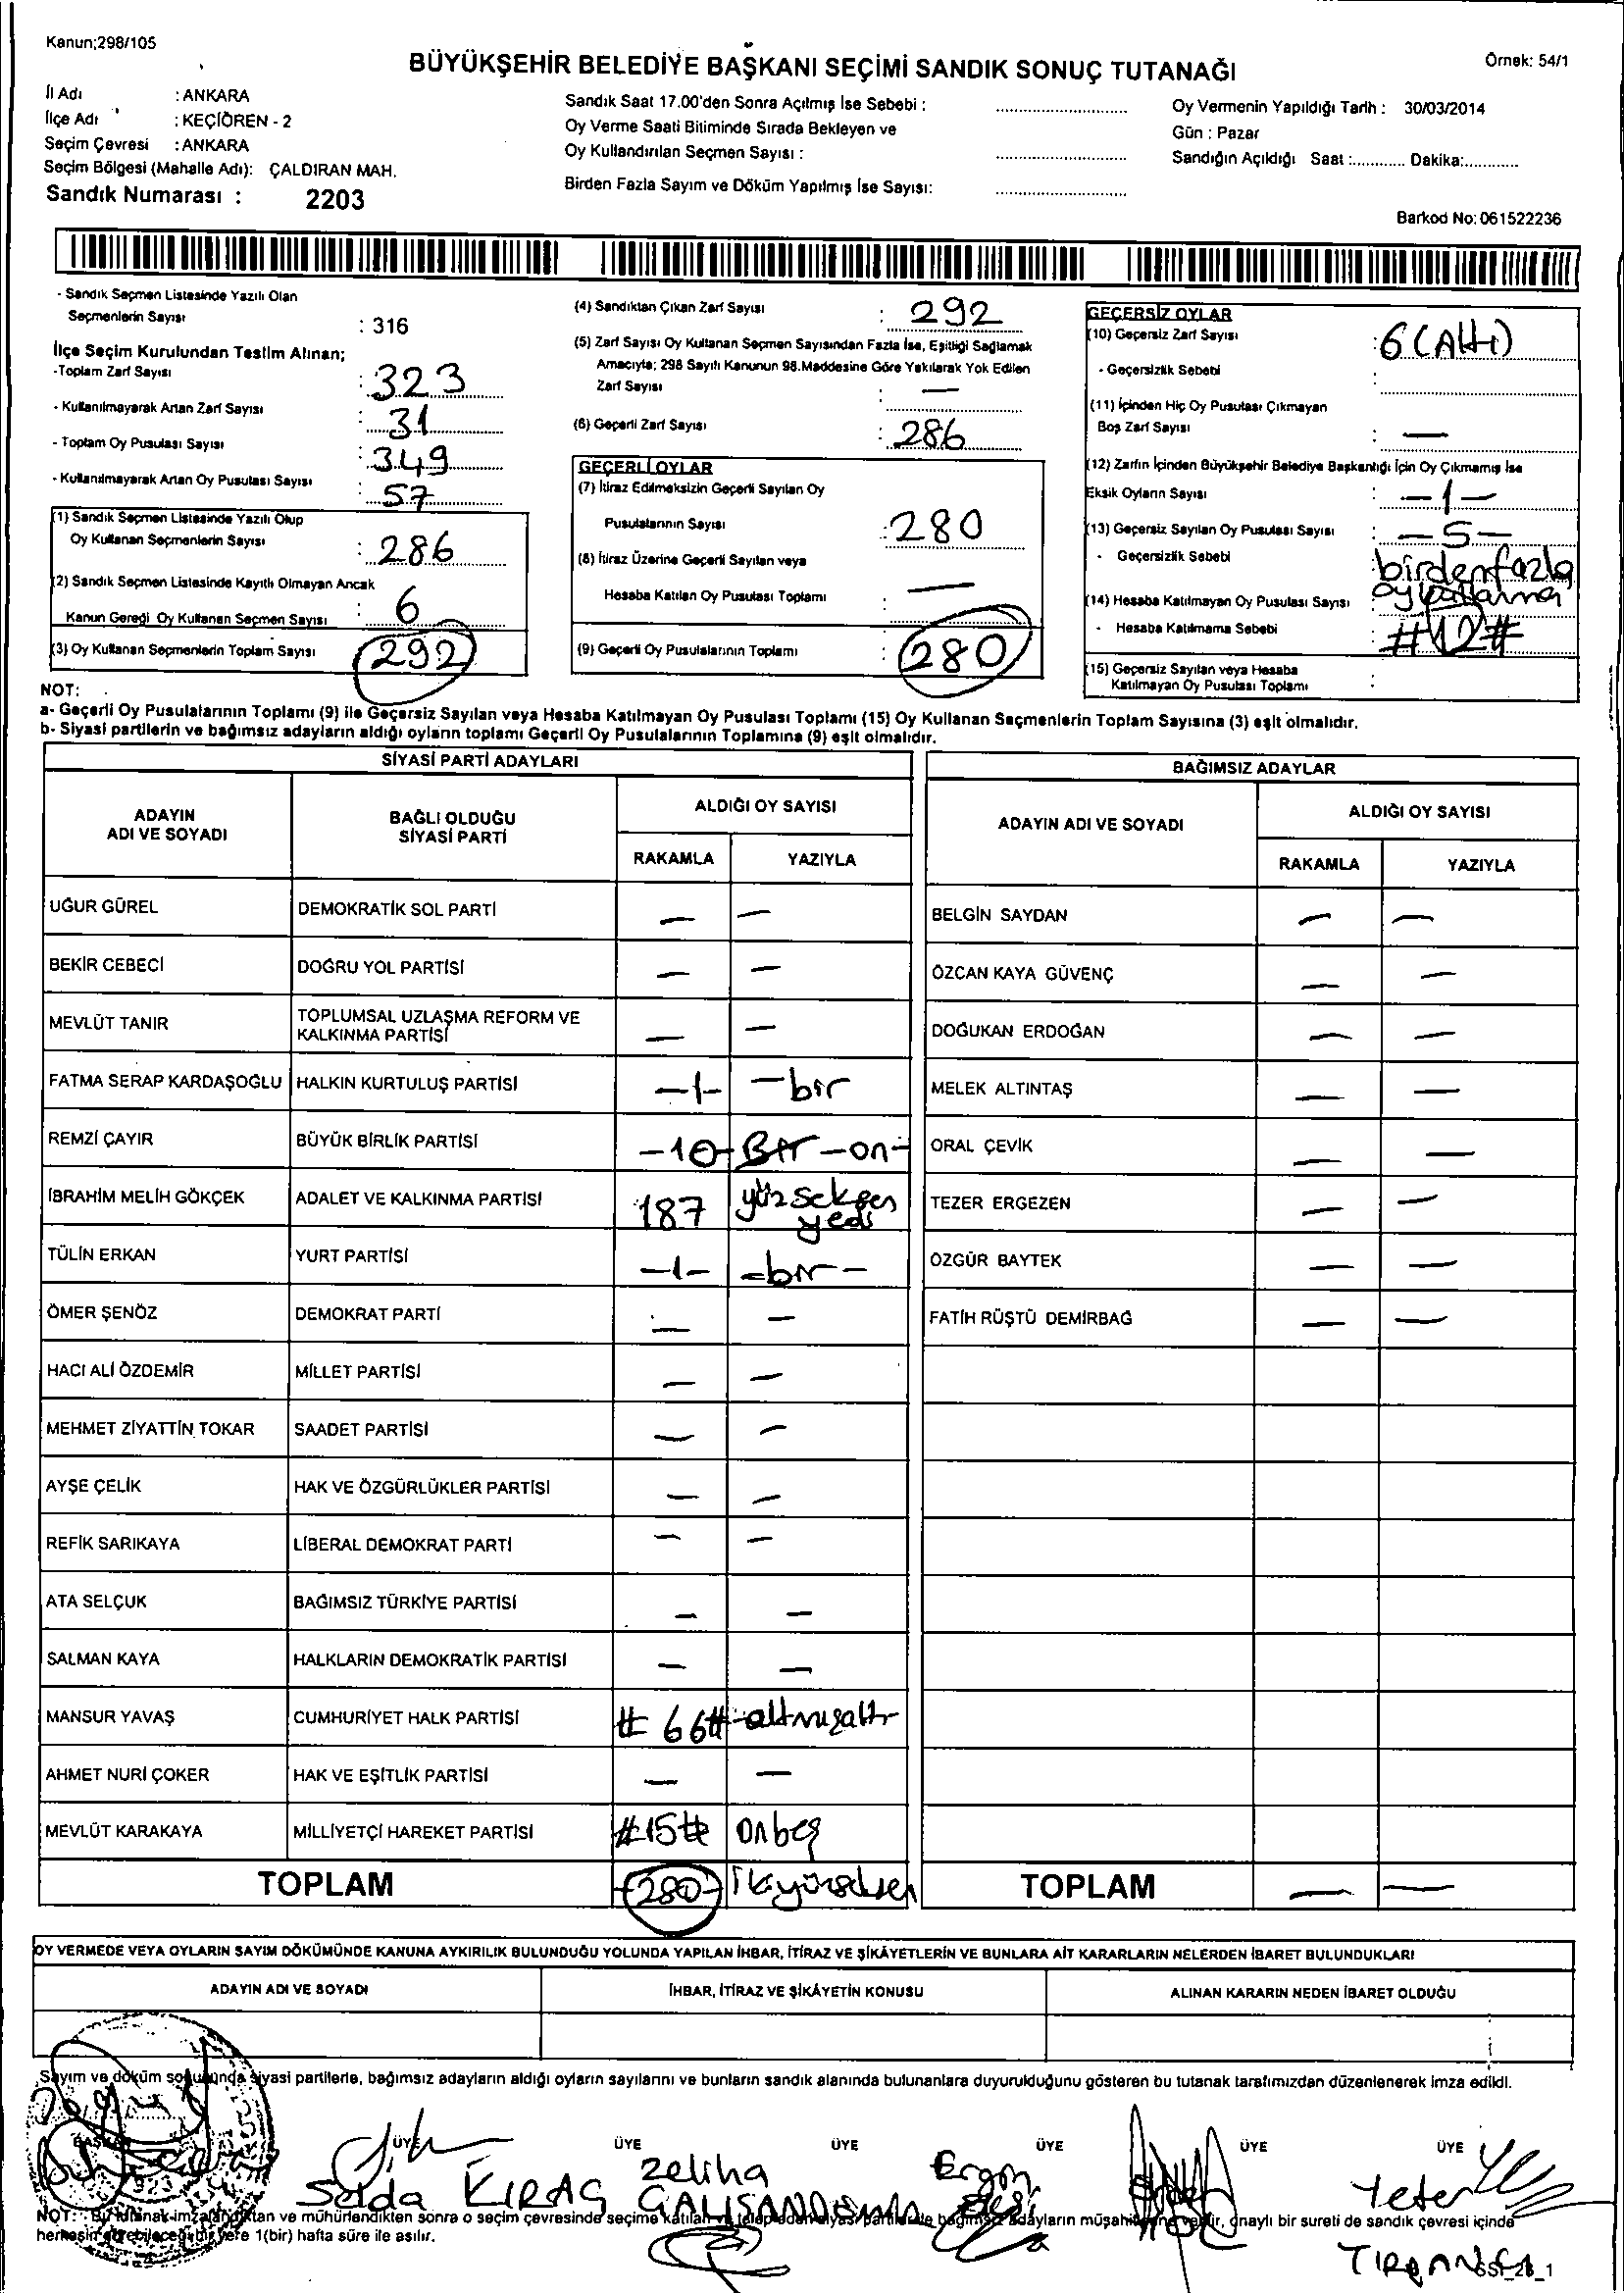 Kanun;298/105
BÜYÜKŞEHİR BELEDİYE BAŞKANI SEÇİMİ SANDIK SONUÇ TUTANAĞI
Örnek: 54/1
İl Adı : ANKARA
İlçe Adı : KEÇİÖREN - 2
Seçim Çevresi : ANKARA
Seçim Bölgesi (Mahalle Adı): ÇALDIRAN MAH.
Sandık Numarası : 2203
Sandık Saat 17.00'den Sonra Açılmış İse Sebebi :
Oy Verme Saati Bitiminde Sırada Bekleyen ve
Oy Kullandırılan Seçmen Sayısı :
Birden Fazla Sayım ve Döküm Yapılmış İse Sayısı:
Oy Vermenin Yapıldığı Tarih : 30/03/2014
Gün : Pazar
Sandığın Açıldığı Saat :............ Dakika:............
Barkod No: 061522236
- Sandık Seçmen Listesinde Yazılı Olan
Seçmenlerin Sayısı : 316
İlçe Seçim Kurulundan Teslim Alınan;
-Toplam Zarf Sayısı : 323
- Kullanılmayarak Artan Zarf Sayısı : 31
- Toplam Oy Pusulası Sayısı : 349
- Kullanılmayarak Artan Oy Pusulası Sayısı : 57
(1) Sandık Seçmen Listesinde Yazılı Olup
Oy Kullanan Seçmenlerin Sayısı : 286
(2) Sandık Seçmen Listesinde Kayıtlı Olmayan Ancak
Kanun Gereği Oy Kullanan Seçmen Sayısı : 6
(3) Oy Kullanan Seçmenlerin Toplam Sayısı : 292
(4) Sandıktan Çıkan Zarf Sayısı : 292
(5) Zarf Sayısı Oy Kullanan Seçmen Sayısından Fazla İse, Eşitliği Sağlamak
Amacıyla; 298 Sayılı Kanunun 98.Maddesine Göre Yakılarak Yok Edilen
Zarf Sayısı : —
(6) Geçerli Zarf Sayısı : 286
GEÇERLİ OYLAR
(7) İtiraz Edilmeksizin Geçerli Sayılan Oy
Pusulalarının Sayısı : 280
(8) İtiraz Üzerine Geçerli Sayılan veya
Hesaba Katılan Oy Pusulası Toplamı : —
(9) Geçerli Oy Pusulalarının Toplamı : 280
GEÇERSİZ OYLAR
(10) Geçersiz Zarf Sayısı : 6 (Altı)
- Geçersizlik Sebebi :
(11) İçinden Hiç Oy Pusulası Çıkmayan
Boş Zarf Sayısı : —
(12) Zarfın İçinden Büyükşehir Belediye Başkanlığı İçin Oy Çıkmamış İse
Eksik Oyların Sayısı : -1-
(13) Geçersiz Sayılan Oy Pusulası Sayısı : -5-
- Geçersizlik Sebebi : birden fazla
(14) Hesaba Katılmayan Oy Pusulası Sayısı :
- Hesaba Katılmama Sebebi : #12#
(15) Geçersiz Sayılan veya Hesaba
Katılmayan Oy Pusulası Toplamı :
NOT:
a- Geçerli Oy Pusulalarının Toplamı (9) ile Geçersiz Sayılan veya Hesaba Katılmayan Oy Pusulası Toplamı (15) Oy Kullanan Seçmenlerin Toplam Sayısına (3) eşit olmalıdır.
b- Siyasi partilerin ve bağımsız adayların aldığı oyların toplamı Geçerli Oy Pusulalarının Toplamına (9) eşit olmalıdır.
SİYASİ PARTİ ADAYLARI
ADAYIN ADI VE SOYADI
BAĞLI OLDUĞU SİYASİ PARTİ
ALDIĞI OY SAYISI
RAKAMLA YAZIYLA
UĞUR GÜREL DEMOKRATİK SOL PARTİ — —
BEKİR CEBECİ DOĞRU YOL PARTİSİ — —
MEVLÜT TANIR TOPLUMSAL UZLAŞMA REFORM VE KALKINMA PARTİSİ — —
FATMA SERAP KARDAŞOĞLU HALKIN KURTULUŞ PARTİSİ -1- -bir
REMZİ ÇAYIR BÜYÜK BİRLİK PARTİSİ -10- Bir -on-
İBRAHİM MELİH GÖKÇEK ADALET VE KALKINMA PARTİSİ 187 yüzseksen yedi
TÜLİN ERKAN YURT PARTİSİ -1- -bir-
ÖMER ŞENÖZ DEMOKRAT PARTİ — —
HACI ALİ ÖZDEMİR MİLLET PARTİSİ — —
MEHMET ZİYATTİN TOKAR SAADET PARTİSİ — —
AYŞE ÇELİK HAK VE ÖZGÜRLÜKLER PARTİSİ — —
REFİK SARIKAYA LİBERAL DEMOKRAT PARTİ — —
ATA SELÇUK BAĞIMSIZ TÜRKİYE PARTİSİ — —
SALMAN KAYA HALKLARIN DEMOKRATİK PARTİSİ — —
MANSUR YAVAŞ CUMHURİYET HALK PARTİSİ # 66# -altmışaltı-
AHMET NURİ ÇOKER HAK VE EŞİTLİK PARTİSİ — —
MEVLÜT KARAKAYA MİLLİYETÇİ HAREKET PARTİSİ #15# onbeş
TOPLAM -280- ikiyüzseksen
BAĞIMSIZ ADAYLAR
ADAYIN ADI VE SOYADI
ALDIĞI OY SAYISI
RAKAMLA YAZIYLA
BELGİN SAYDAN — —
ÖZCAN KAYA GÜVENÇ — —
DOĞUKAN ERDOĞAN — —
MELEK ALTINTAŞ — —
ORAL ÇEVİK — —
TEZER ERGEZEN — —
ÖZGÜR BAYTEK — —
FATİH RÜŞTÜ DEMİRBAĞ — —
TOPLAM — —
OY VERMEDE VEYA OYLARIN SAYIM DÖKÜMÜNDE KANUNA AYKIRILIK BULUNDUĞU YOLUNDA YAPILAN İHBAR, İTİRAZ VE ŞİKÂYETLERİN VE BUNLARA AİT KARARLARIN NELERDEN İBARET BULUNDUKLARI
ADAYIN ADI VE SOYADI
İHBAR, İTİRAZ VE ŞİKÂYETİN KONUSU
ALINAN KARARIN NEDEN İBARET OLDUĞU
Sayım ve döküm sonucunda siyasi partilerle, bağımsız adayların aldığı oyların sayılarını ve bunların sandık alanında bulunanlara duyurulduğunu gösteren bu tutanak tarafımızdan düzenlenerek imza edildi.
BAŞKAN ÜYE ÜYE ÜYE ÜYE ÜYE ÜYE
Selda KIRAÇ
Zeliha
Yeter
NOT: Bu tutanak imzalandıktan ve mühürlendikten sonra o seçim çevresinde seçime katılan ve talep eden siyasi partilerle bağımsız adayların müşahitlerine verilir, onaylı bir sureti de sandık çevresi içinde
herkesin görebileceği bir yere 1(bir) hafta süre ile asılır.